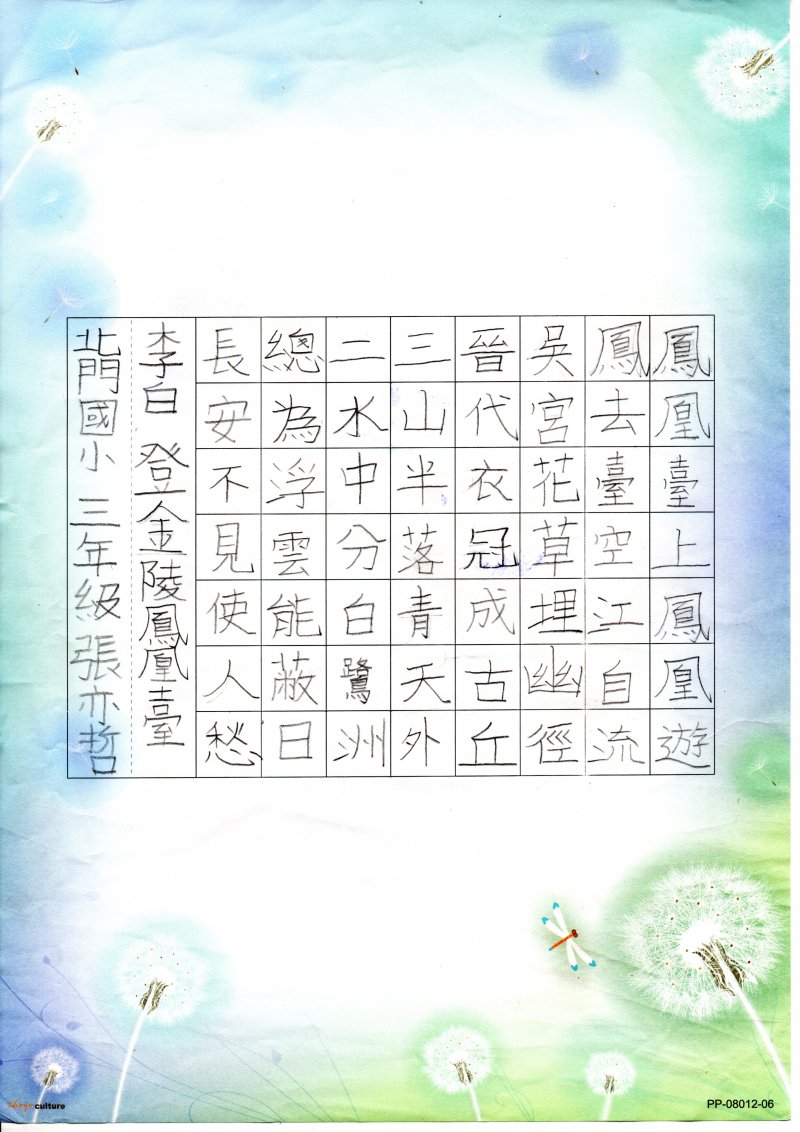 鳳凰臺上鳳凰遊
鳳去臺空江自流
吳宮花草埋幽徑
晉代衣冠成古丘
三山半落青天外
二水中分白鷺洲
總為浮雲能蔽日
長安不見使人愁
李白 登金陵鳳凰臺
北門國小 三年級 張亦哲
culture
PP-08012-06